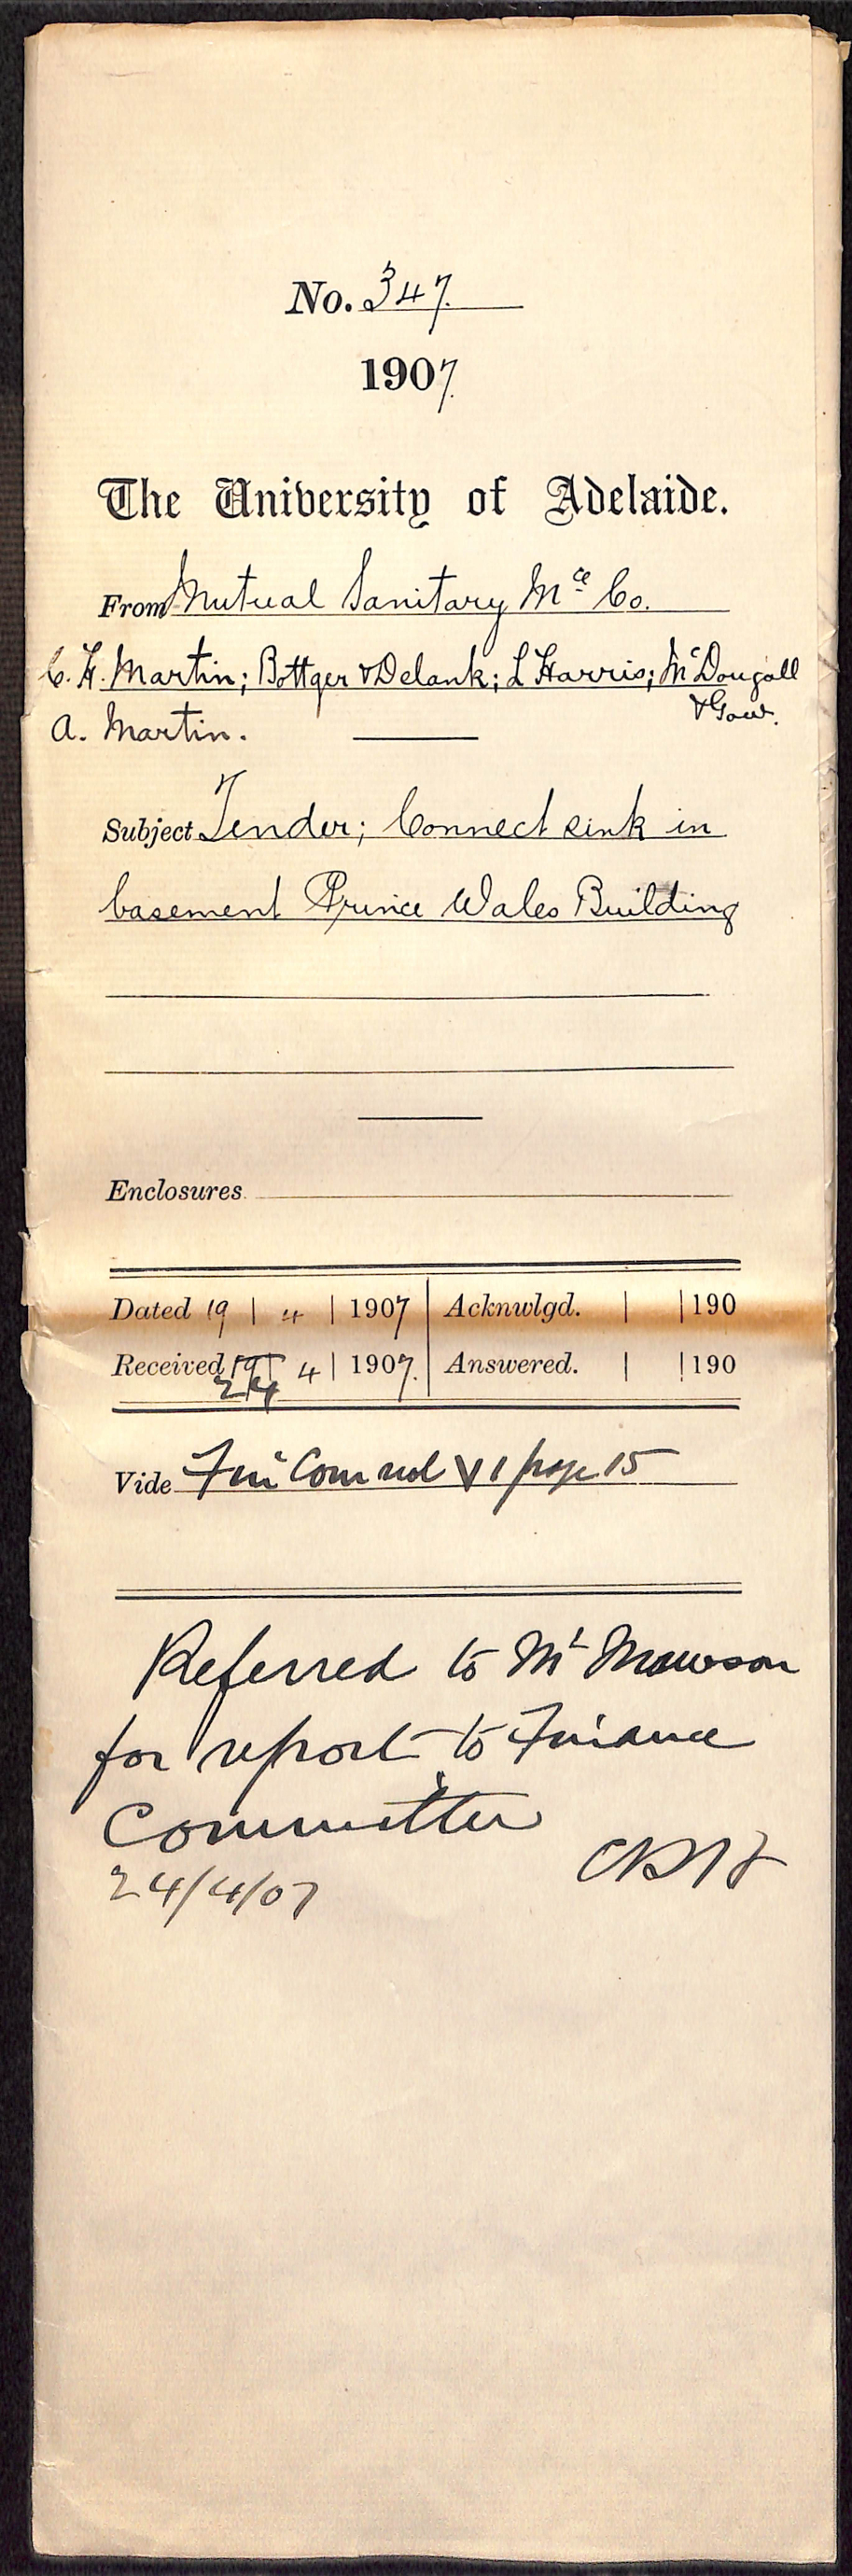 No. 347.
1907.
The University of Adelaide.
From Mutual Sanitary Mce Co.
C. H. Martin; Bottger & Delank; L Harris; McDougall
& Gow.
A. Martin.
Subject Tender; Connect sink in
basement Prince Wales Building
Enclosures
Dated 19 | 4 | 1907 Acknwlgd. | | 190
Received 19 24 | 4 | 1907. Answered. | | 190
Vide Fin Com V 1 page 15
Referred to Mr Mawson
for report to Finance
Committee
24/4/07